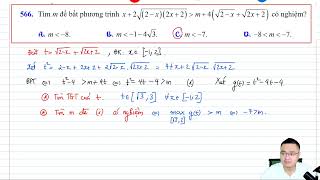 566. Tìm m để bất phương trình x + 2√(2 − x)(2x + 2) > m + 4(√2 − x + √2x + 2) có nghiệm?
A. m < −8. B. m < −1 − 4√3. C. m < −7. D. −8 < m < −7.
Đặt t = √2-x + √2x+2, ĐK: x ∈ [-1;2]
t² = 2-x + 2x+2 + 2√2-x . √2x+2 = 4+x+2√2-x √2x+2
BPT ⇔ t² - 4 > m + 4t ⇔ t² - 4t - 4 > m Xét g(t) = t² - 4t - 4
Tìm t ∈ [√3; 3] ∀x ∈ [-1;2]
Tìm m để có nghiệm ⇔ max g(t) > m ⇔ -7 > m
[√3;3]